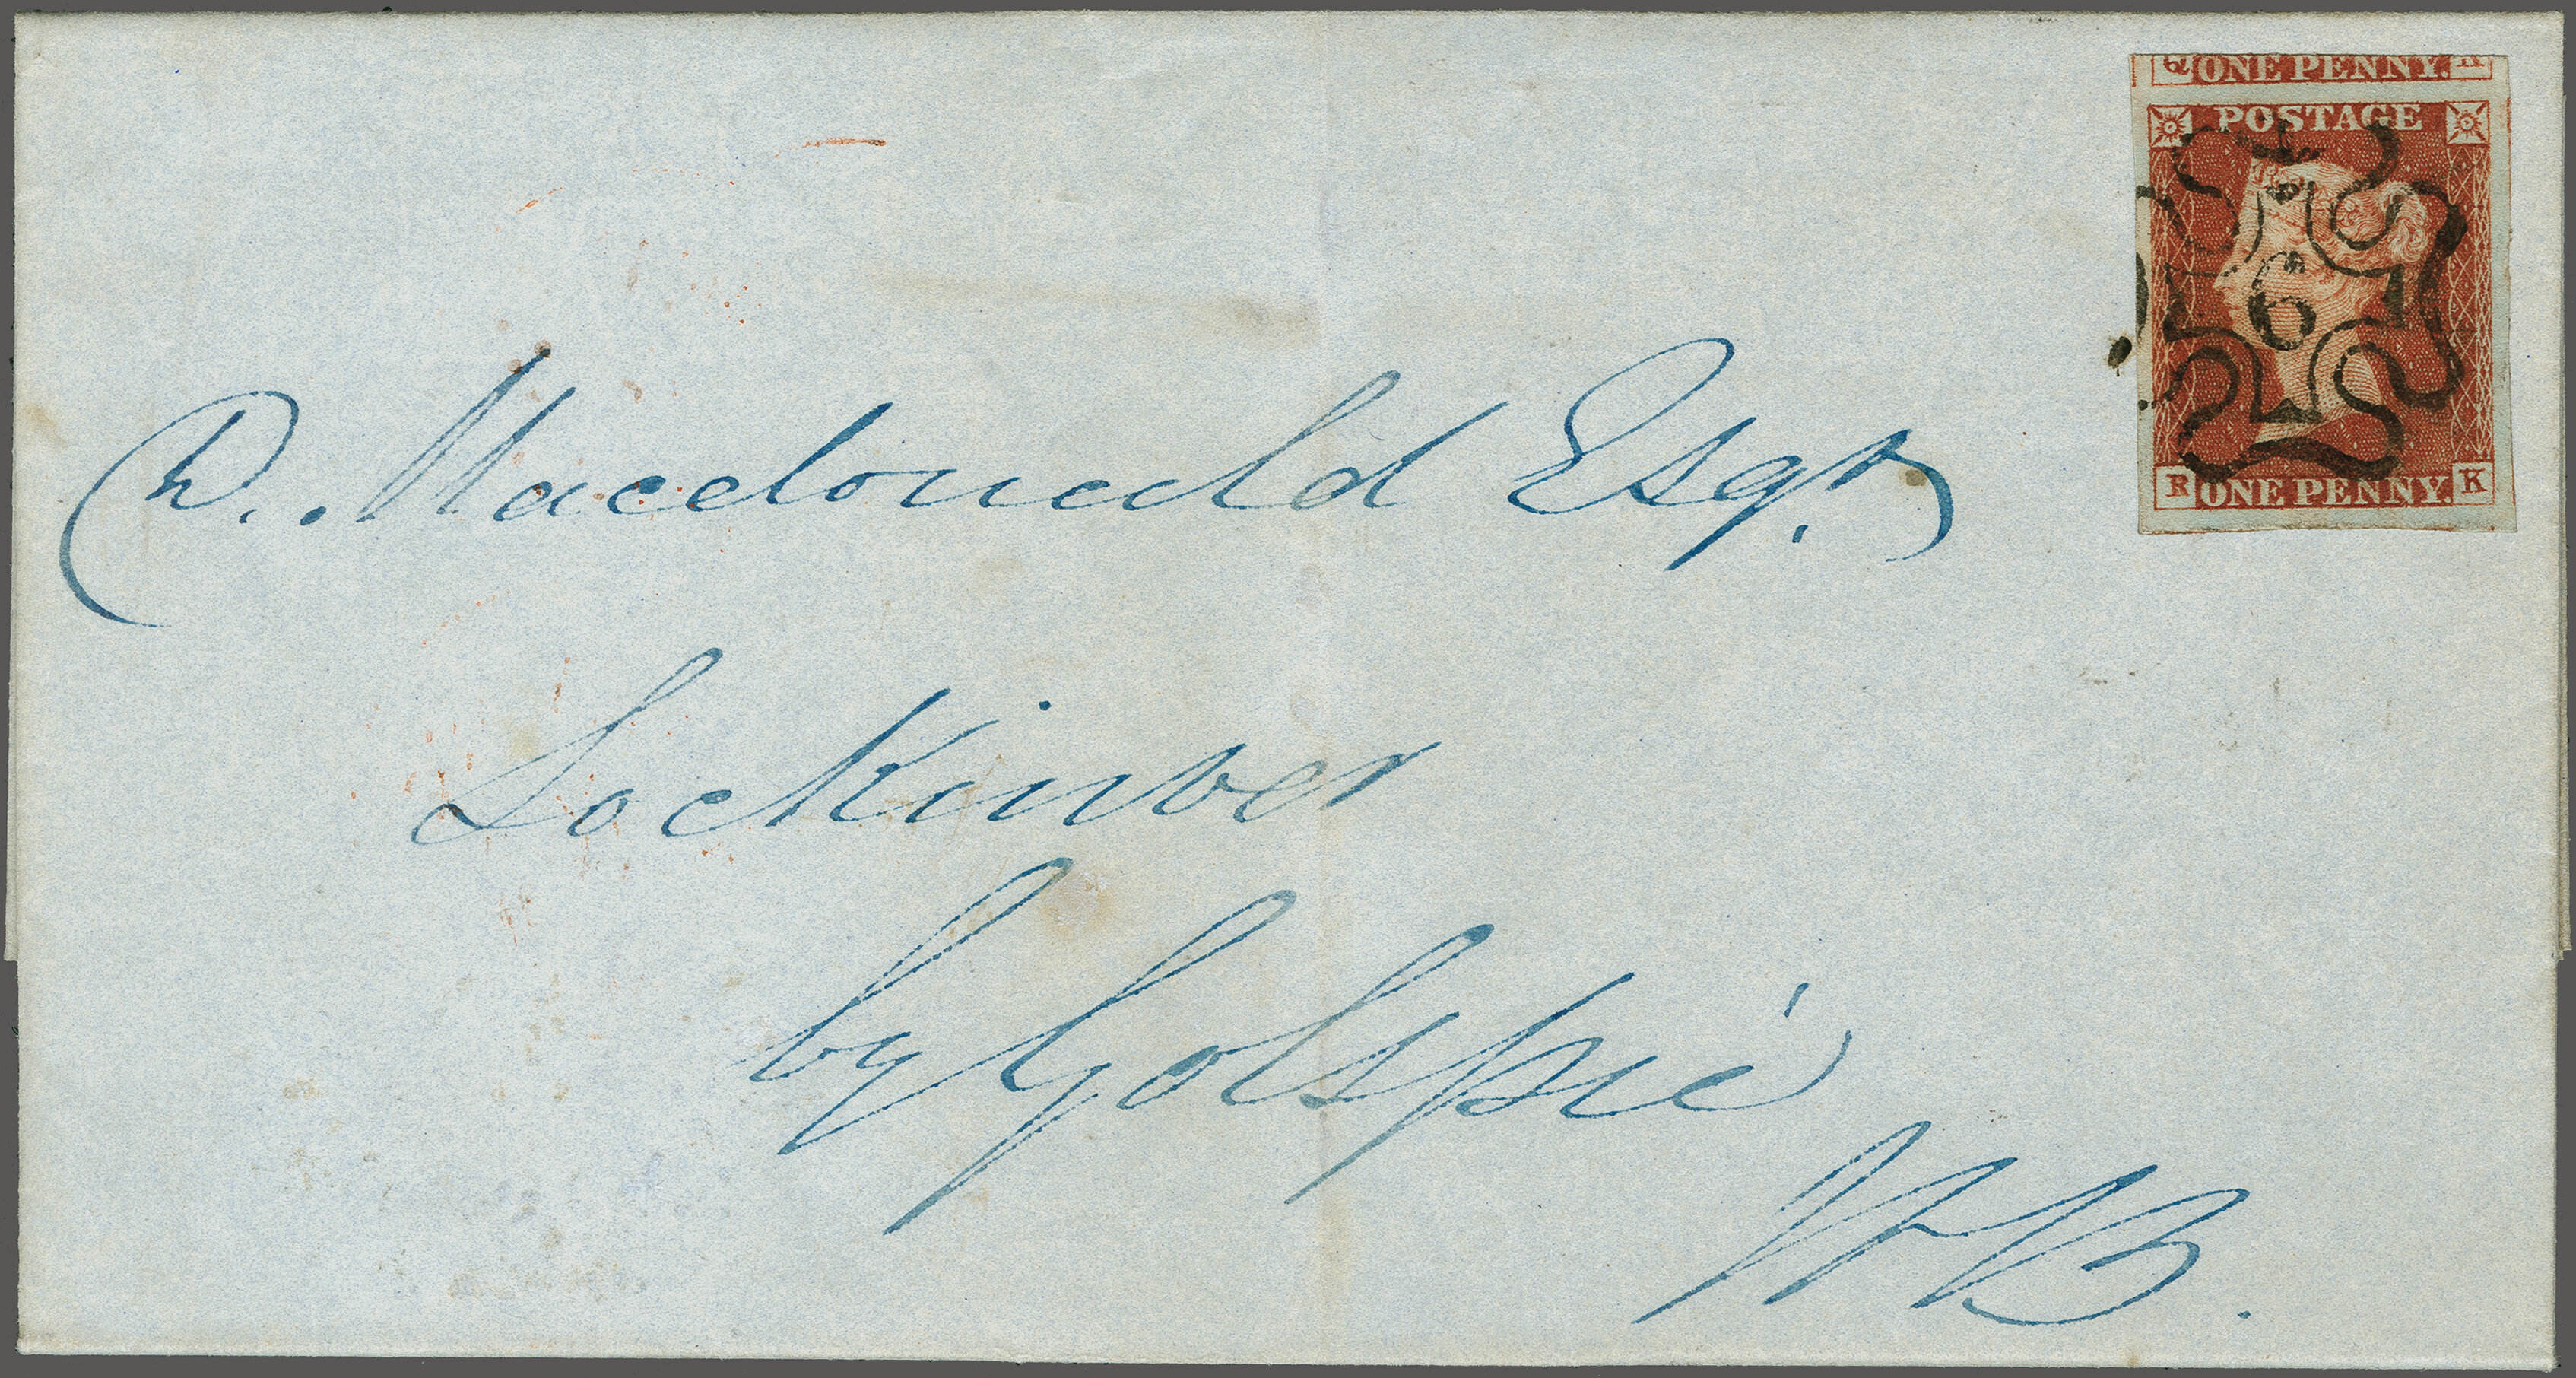 Q ONE PENNY. K
POSTAGE
6
R ONE PENNY K
D. Macdonald Esqr.
Lockinver
by Golspie
NB.